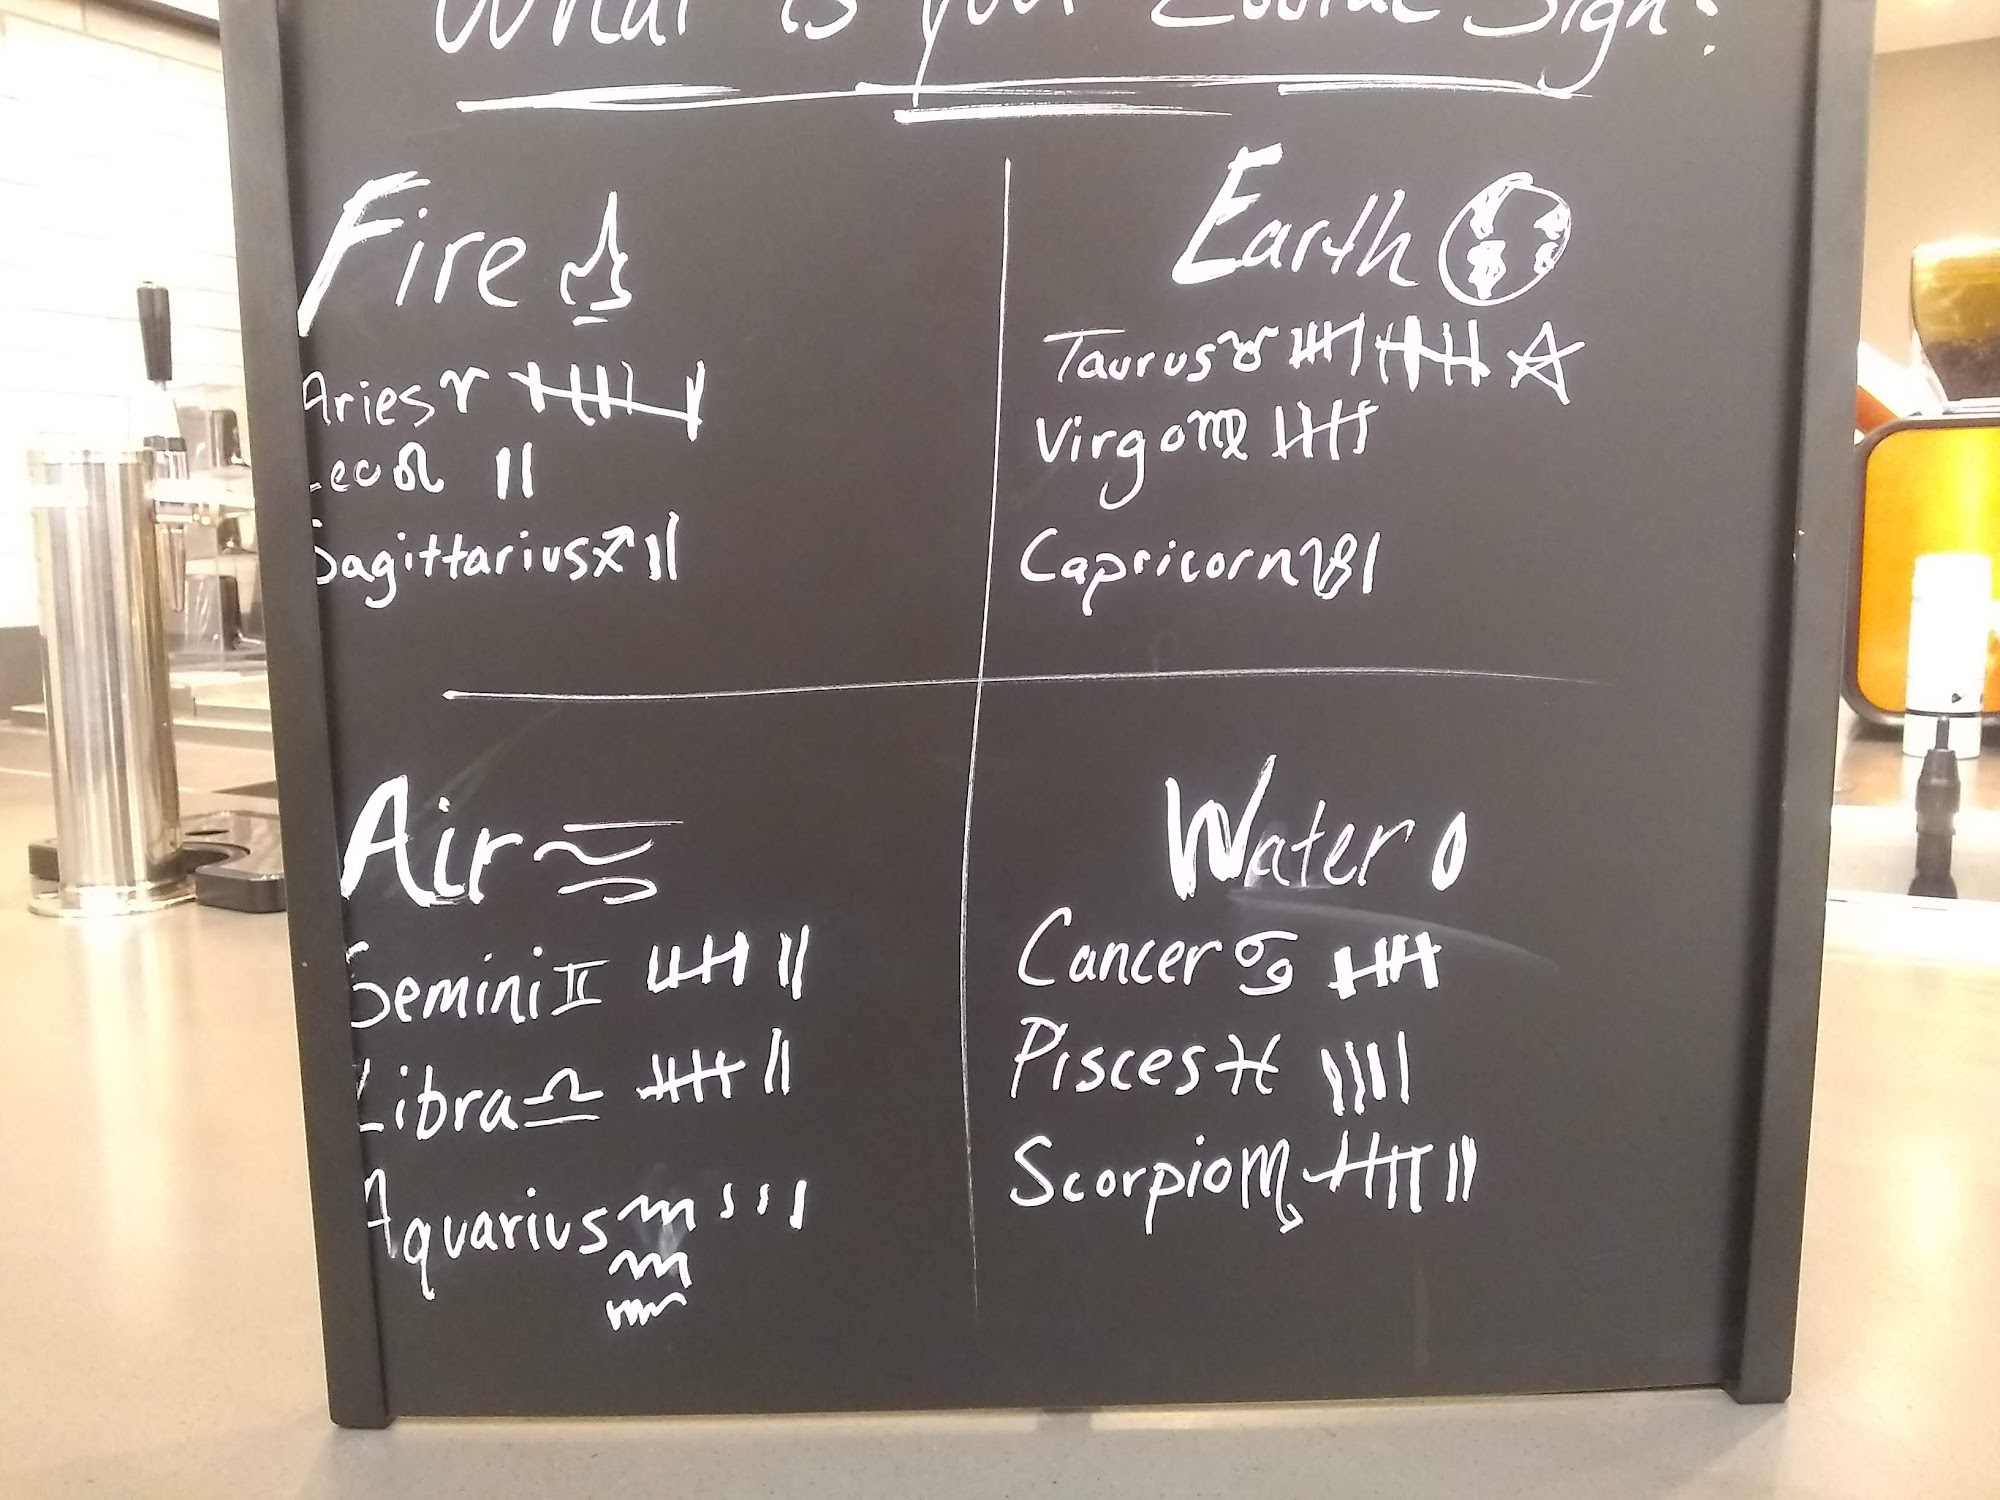 What is your Zodiac Sign?
Fire
Aries ♈
Leo ♌
Sagittarius ♐
Earth
Taurus ♉
Virgo ♍
Capricorn ♑
Air
Gemini ♊
Libra ♎
Aquarius ♒
Water
Cancer ♋
Pisces ♓
Scorpio ♏